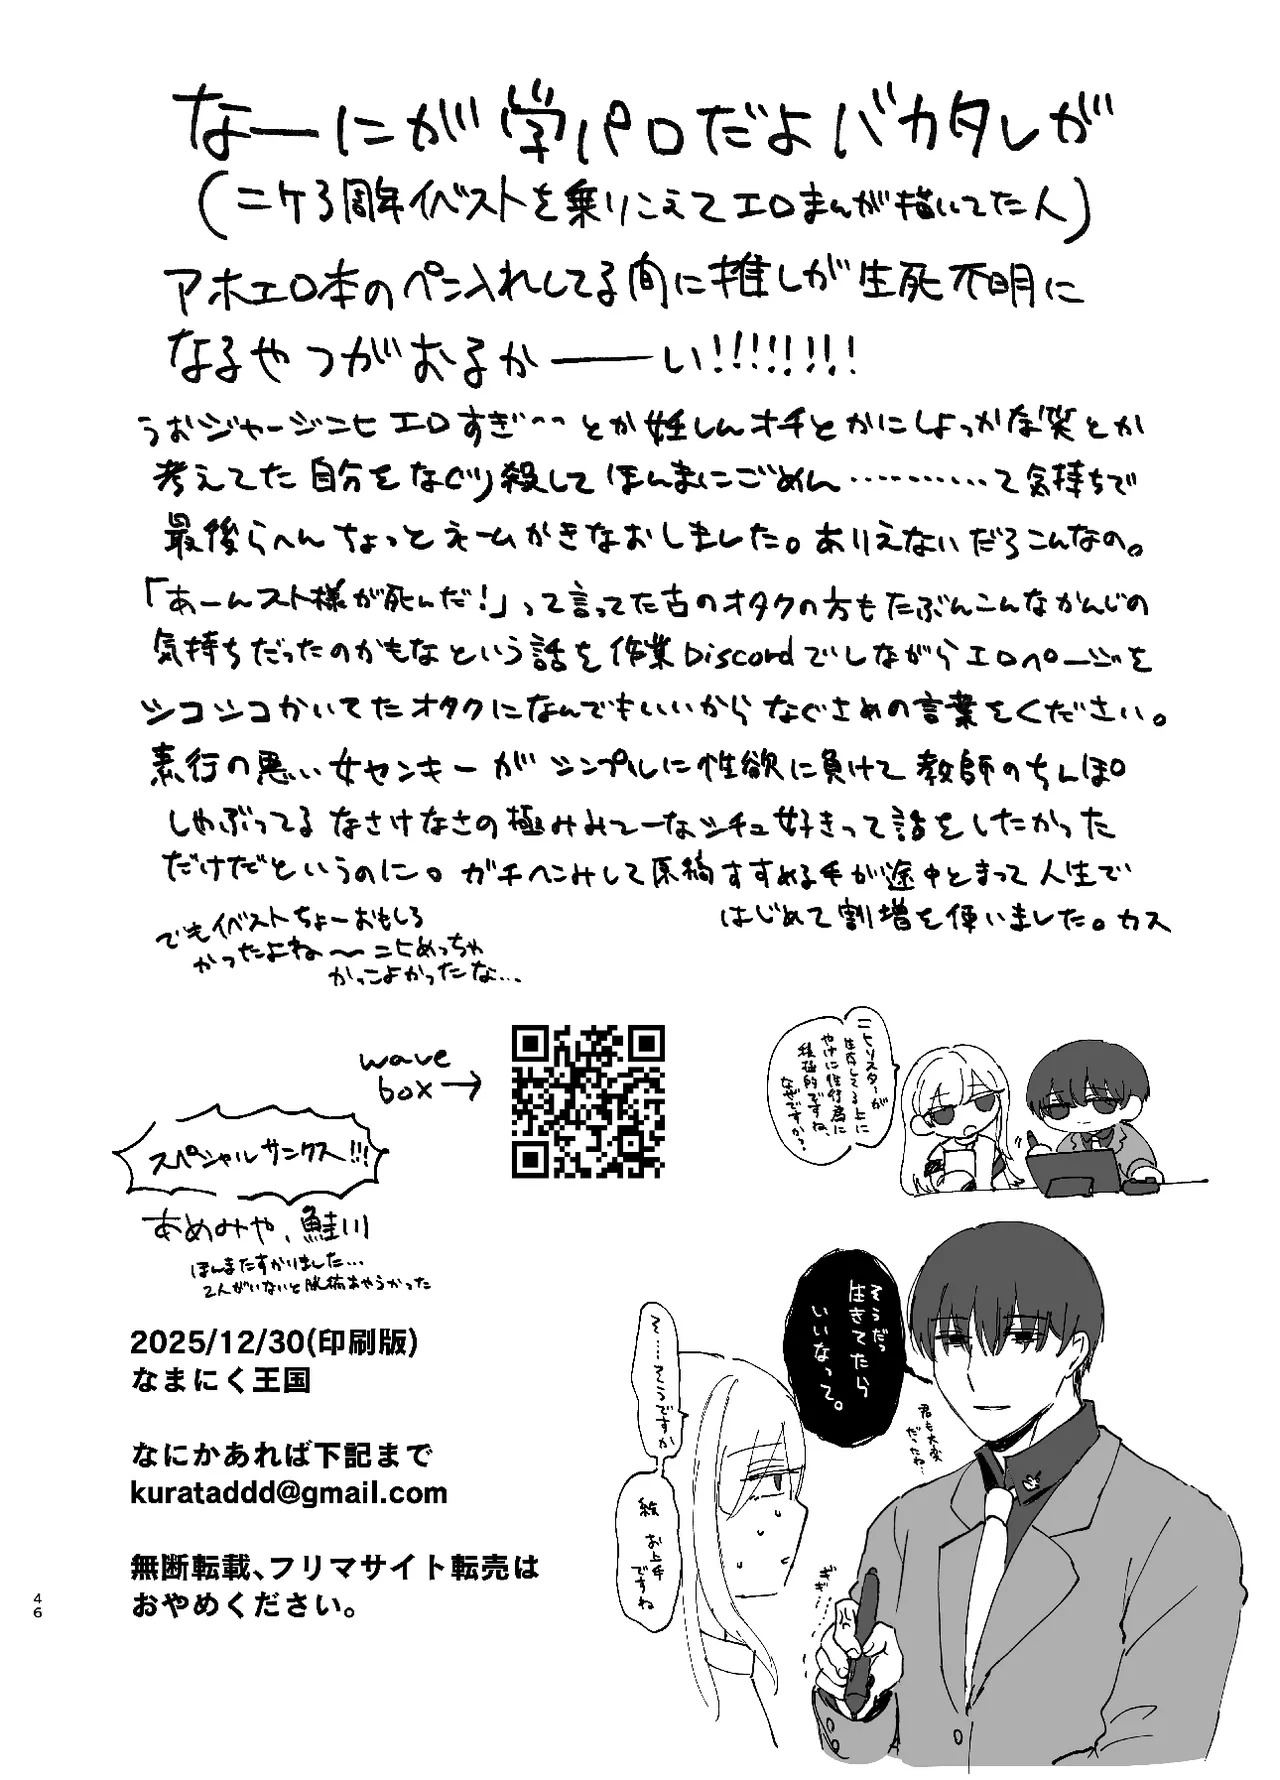 なーにが学パロだよバカタレが
(ニケ3周年イベストを乗りこえてエロまんが描いてた人)
アホエロ本のペン入れしてる間に推しが生死不明に
なるやつがおるかーーい!!!!!!!!
うおジャージニヒエロすぎ^^とか妊しんオチとかにしよっかな笑とか
考えてた自分をなぐり殺してほんまにごめん…………て気持ちで
最後らへんちょっとネームかきなおしました。ありえないだろこんなの。
「あーんスト様が死んだ!」って言ってた古のオタクの方もたぶんこんなかんじの
気持ちだったのかもなという話を作業Discordでしながらエロページを
シコシコかいてたオタクになんでもいいからなぐさめの言葉をください。
素行の悪い女センキーがシンプルに性欲に負けて教師のちんぽ
しゃぶってるなさけなさの極みみてーなシチュ好きって話をしたかった
だけだというのに。ガチヘンみして原稿すすめる手が途中とまって人生で
はじめて割増を使いました。カス
でもイベストちょーおもしろ
かったよね〜ニヒめっちゃ
かっこよかったな…
wave
box→
スペシャルサンクス!!!
あめみや、鮭川
ほんまたすかりました…
2人がいないと脱稿あやうかった
2025/12/30(印刷版)
なまにく王国
なにかあれば下記まで
kurataddd@gmail.com
無断転載、フリマサイト転売は
おやめください。
ニヒリスターが
生存してる上に
やけに性行為に
積極的ですね、
なぜですか?
そうだっ
生きてたら
いいなって。
君も大変
だったね…
そ……そうですか
絵お上手
ですね
ギギ…
46